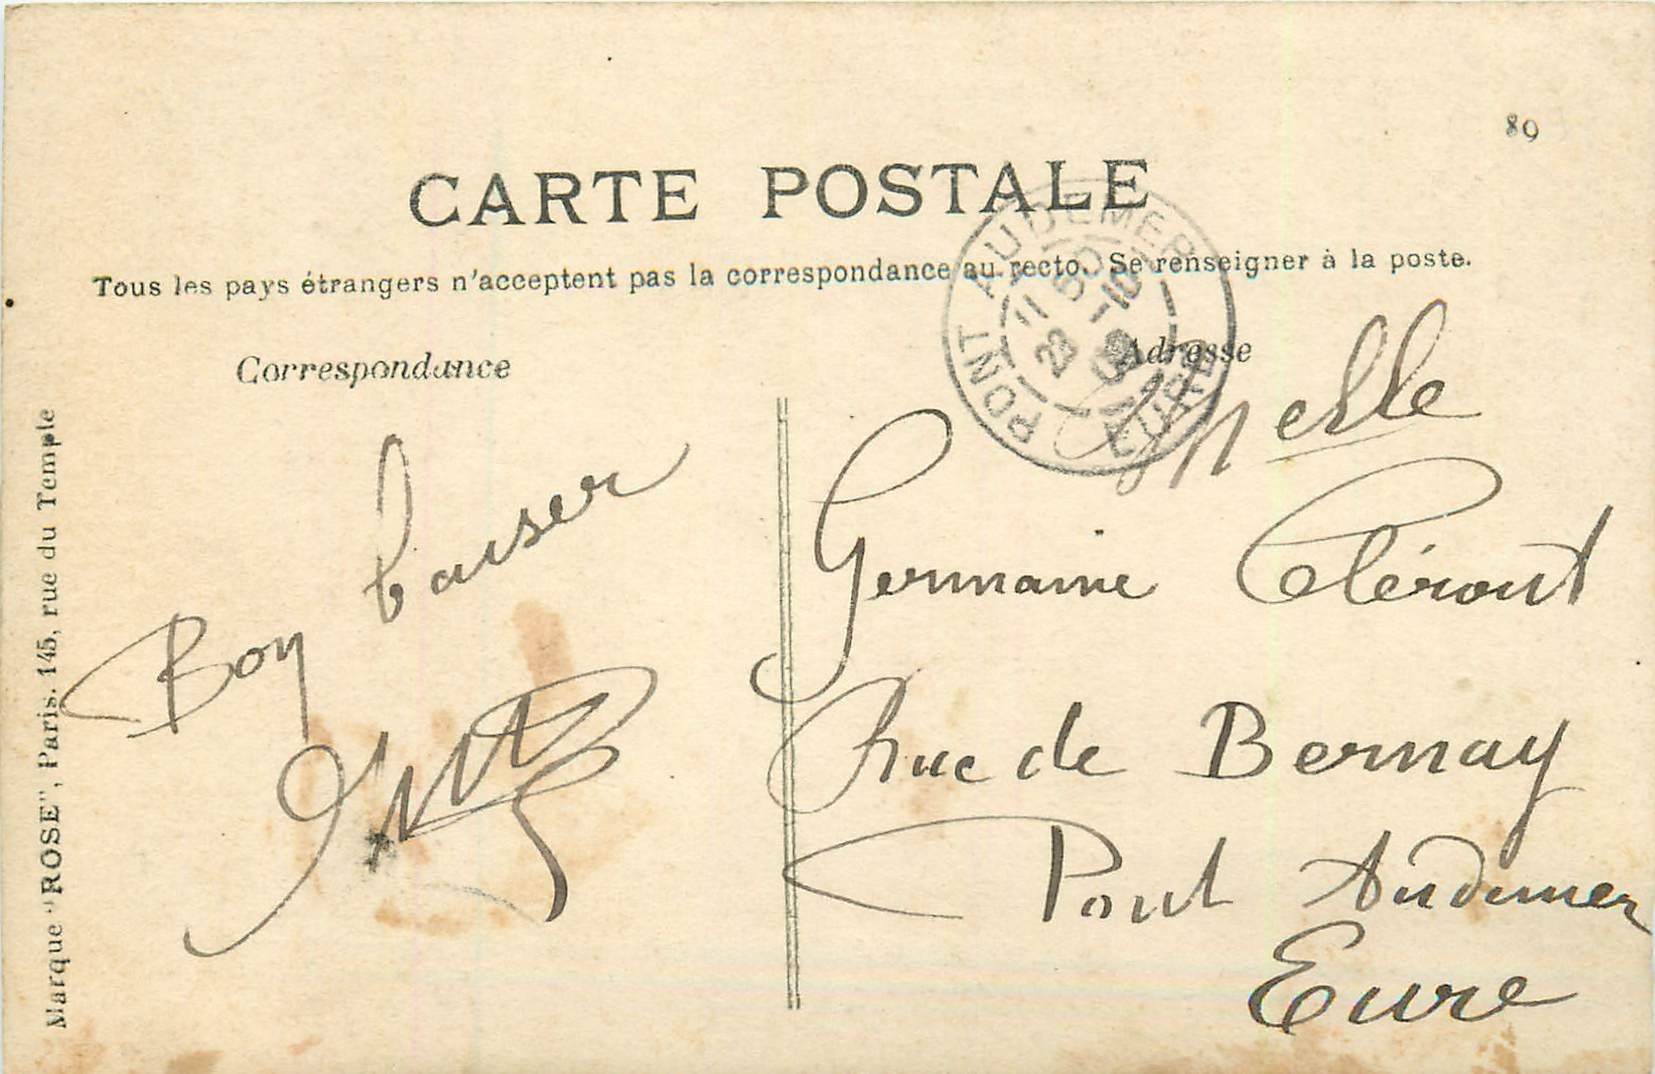 89
CARTE POSTALE
Tous les pays étrangers n'acceptent pas la correspondance au recto. Se renseigner à la poste.
Correspondance
Adresse
PONT AUDEMER
23 -10
09
EURE
Bon baiser
Melle
Germaine Clérout
Rue de Bernay
Pont Audemer
Eure
Marque "ROSE", Paris. 145, rue du Temple